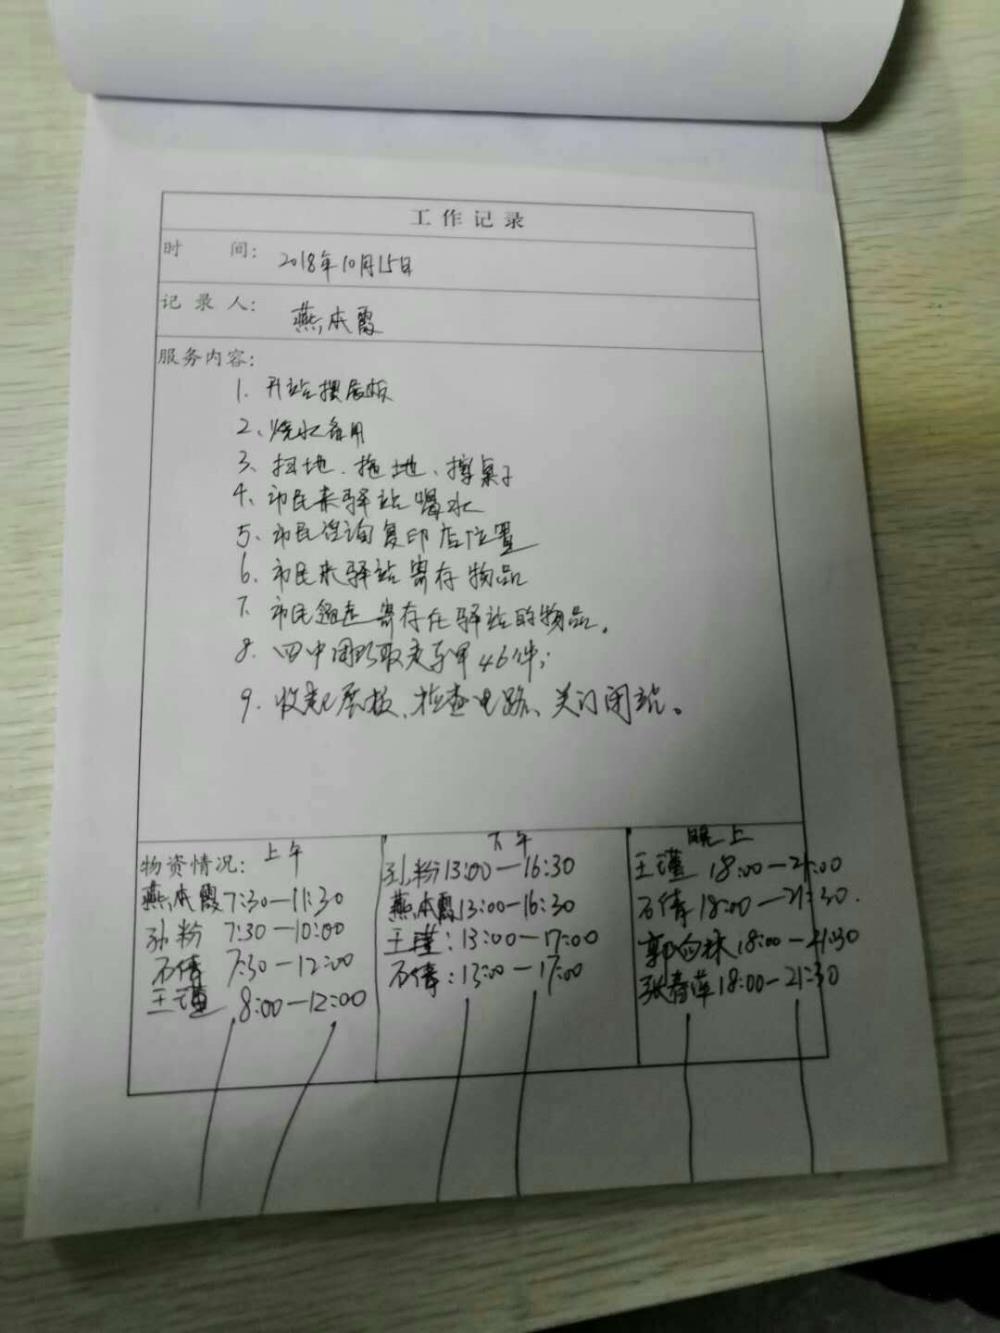 工作记录
时 间: 2018年10月15日
记录人: 燕本霞
服务内容:
1. 开站摆展板
2、烧水备用
3、扫地、拖地、擦桌子
4、市民来驿站喝水
5、市民咨询复印店位置
6、市民来驿站寄存物品
7、市民寄存在驿站的物品。
8、四中团取走 46件;
9、收起展板、检查电路、关门闭站。
物资情况: 上午
燕本霞 7:30—11:30
孙粉 7:30—10:00
石倩 7:30—12:00
王瑾 8:00—12:00
下午
孙粉 13:00—16:30
燕本霞 13:00—16:30
王瑾: 13:00—17:00
石倩: 13:00—17:00
晚上
王瑾 18:00—21:00
石倩 18:00—21:30.
郭向林 18:00—21:30
张春萍 18:00—21:30